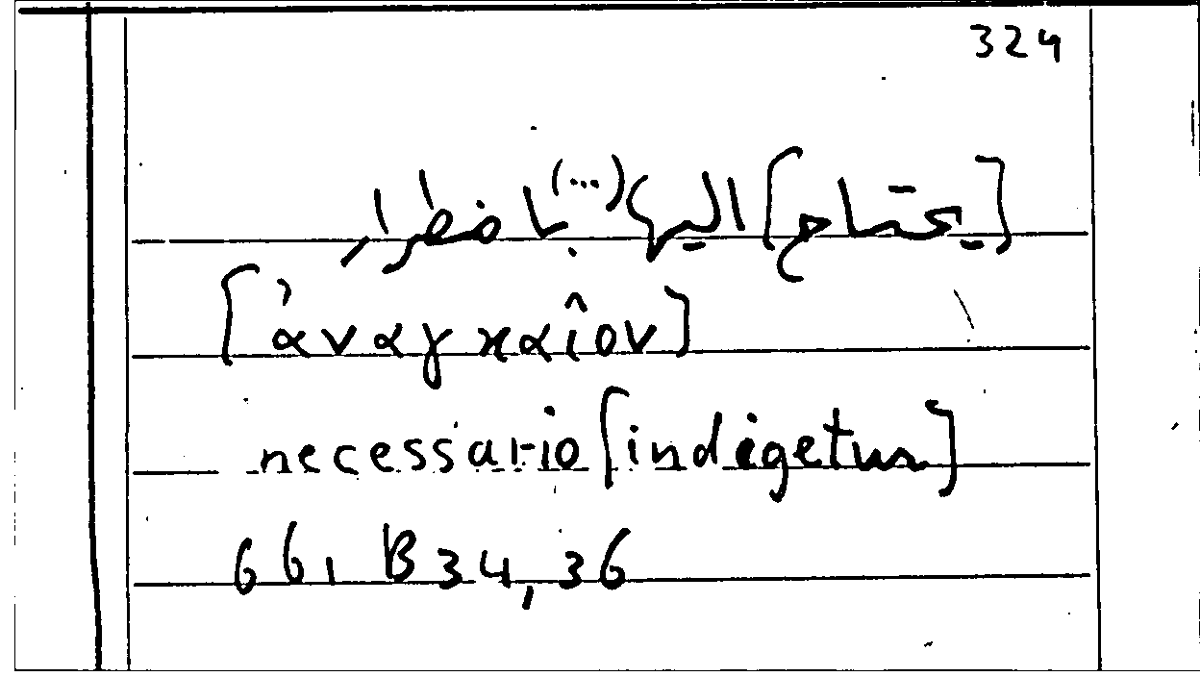 324
[يحتاج] اليها (...) باضطرار
[ἀναγκαῖον]
necessario [indigetur]
661 B34, 36